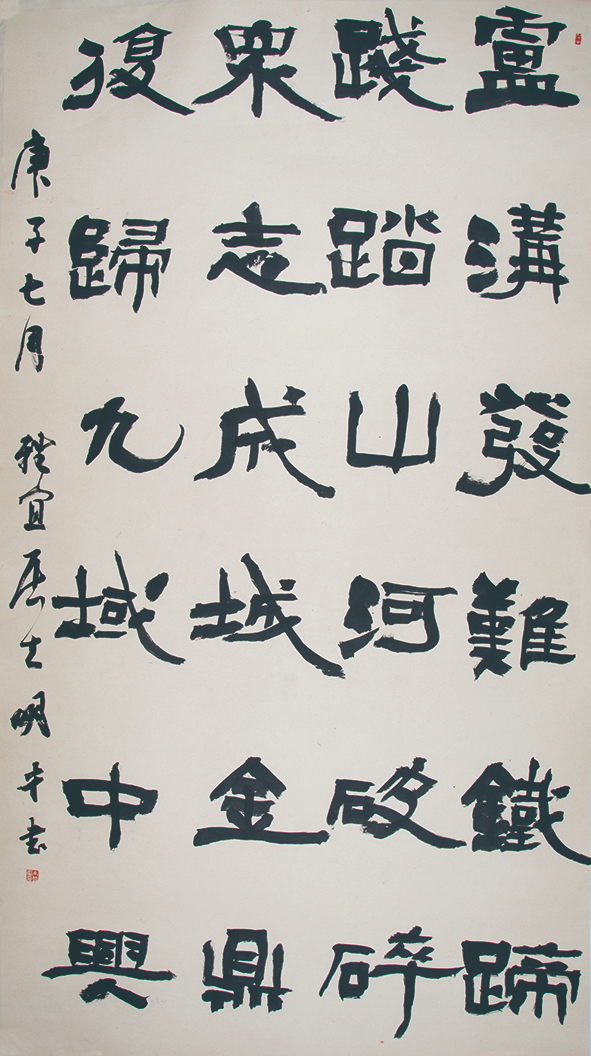 盧溝發難鐵蹄
踐踏山河破碎
眾志成城金鼎
復歸九域中興
庚子七月 宜居士明书